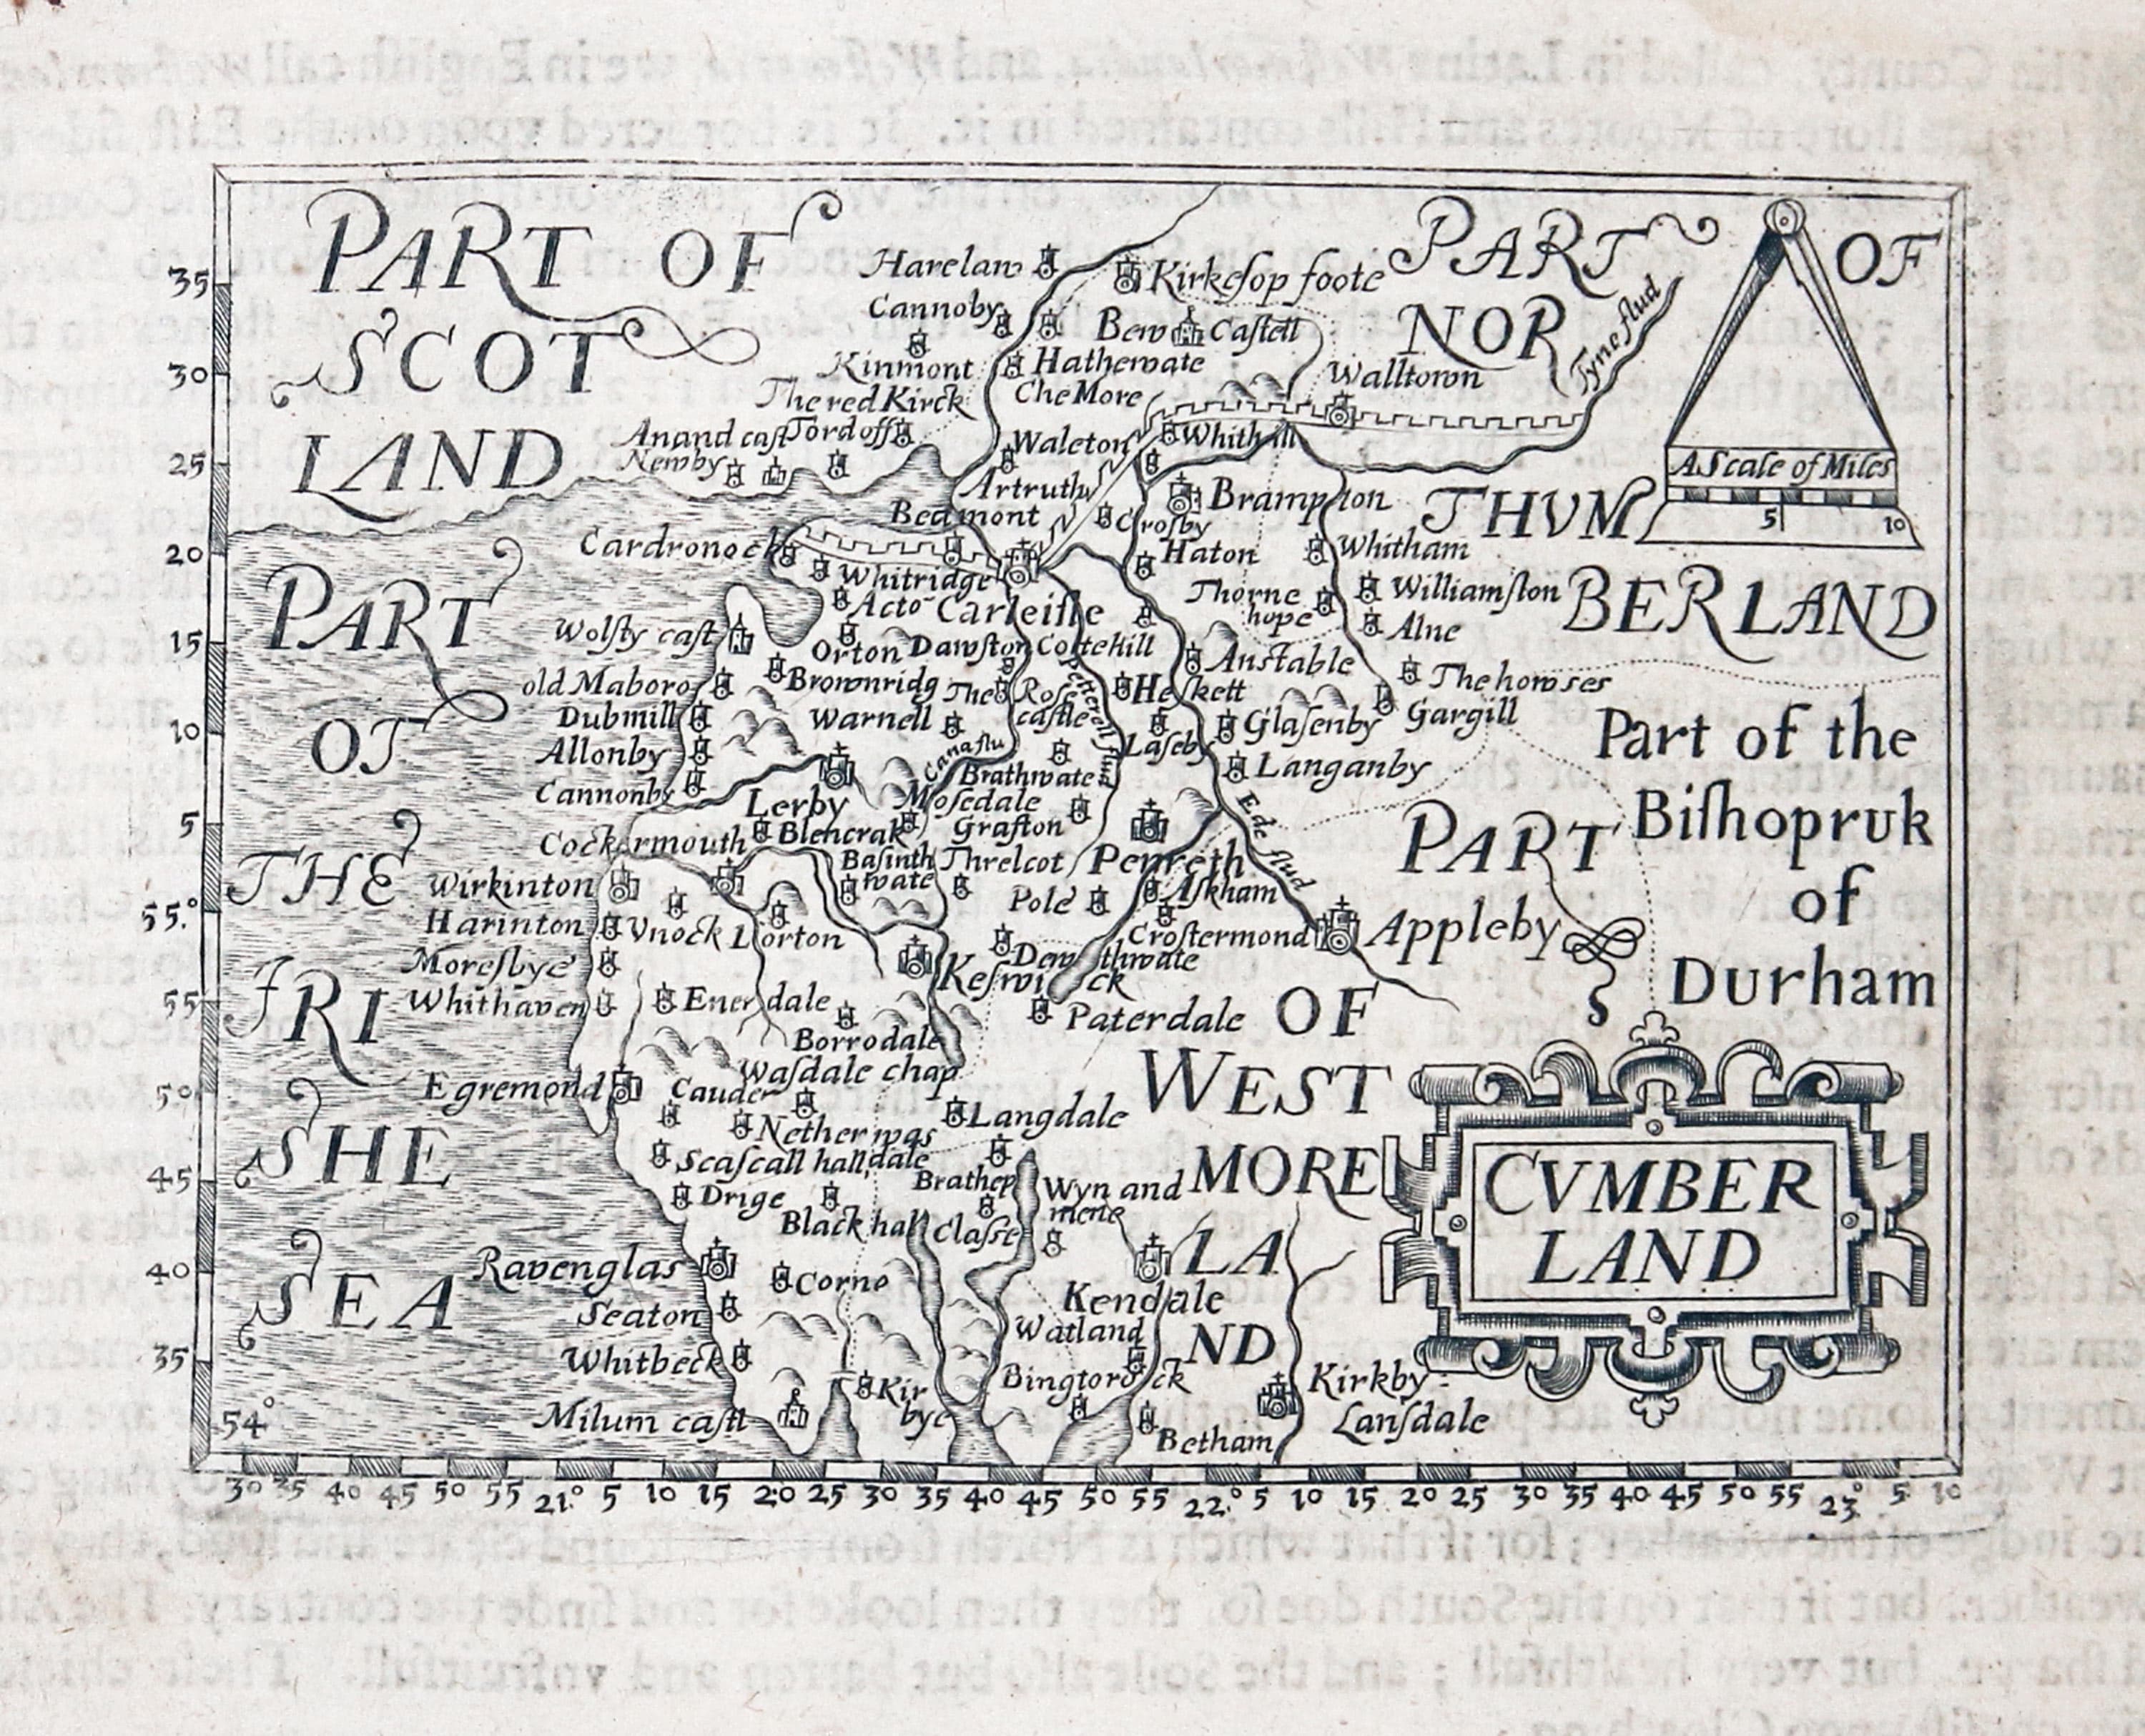 PART OF
SCOT
LAND
PART
OF
THE
IRI
SHE
SEA
PART OF
NOR
THVM
BERLAND
Tyne flud
A Scale of Miles
5 10
Part of the
Biſhopruk
of
Durham
PART
OF
WEST
MORE
LA
ND
CVMBER
LAND
Harelaw
Kirkeſop foote
Cannoby
Bew Caſtell
Kinmont
Hathewate
Che More
Walltown
The red Kirck
Anand caſt
Tordoff
Newby
Waleton
Whithill
Artruth
Brampton
Beamont
Croſby
Cardronock
Haton
Whitham
Whitridge
Acto
Carleiſle
Thorne
hope
Williamſton
Alne
Wolſty caſt
Orton
Dawſton
Cotehill
Anstable
The howses
old Maboro
Brownridg
The Roſe
caſtle
Heſkett
Gargill
Dubmill
Warnell
Glaſenby
Allonby
Cana flu
Laſeby
Brathwate
Langanby
Cannonby
Lerby
Moſedale
Grafton
Cockermouth
Blencrak
Baſinth
wate
Threlcot
Penreth
Ede flud
Wirkinton
Pole
Aſkham
Harinton
Vnock
Lorton
Croſtermond
Appleby
Moreſbye
Dewthwate
Keſwick
Whithaven
Enerdale
Paterdale
Borrodale
Waſdale chap
Egremond
Cauder
Langdale
Netherwas
dale
Scaſcall hall
Brathep
Wyn and
mere
Drige
Black hall
Claſse
Ravenglas
Corno
Kendale
Seaton
Watland
Whitbeck
Bingtorock
Kirkby
Lanſdale
Milum caſtl
Kir
bye
Betham
35
30
25
20
15
10
5
55°
55
50
45
40
35
54°
30 35 40 45 50 55 21° 5 10 15 20 25 30 35 40 45 50 55 22° 5 10 15 20 25 30 35 40 45 50 55 23° 5 10